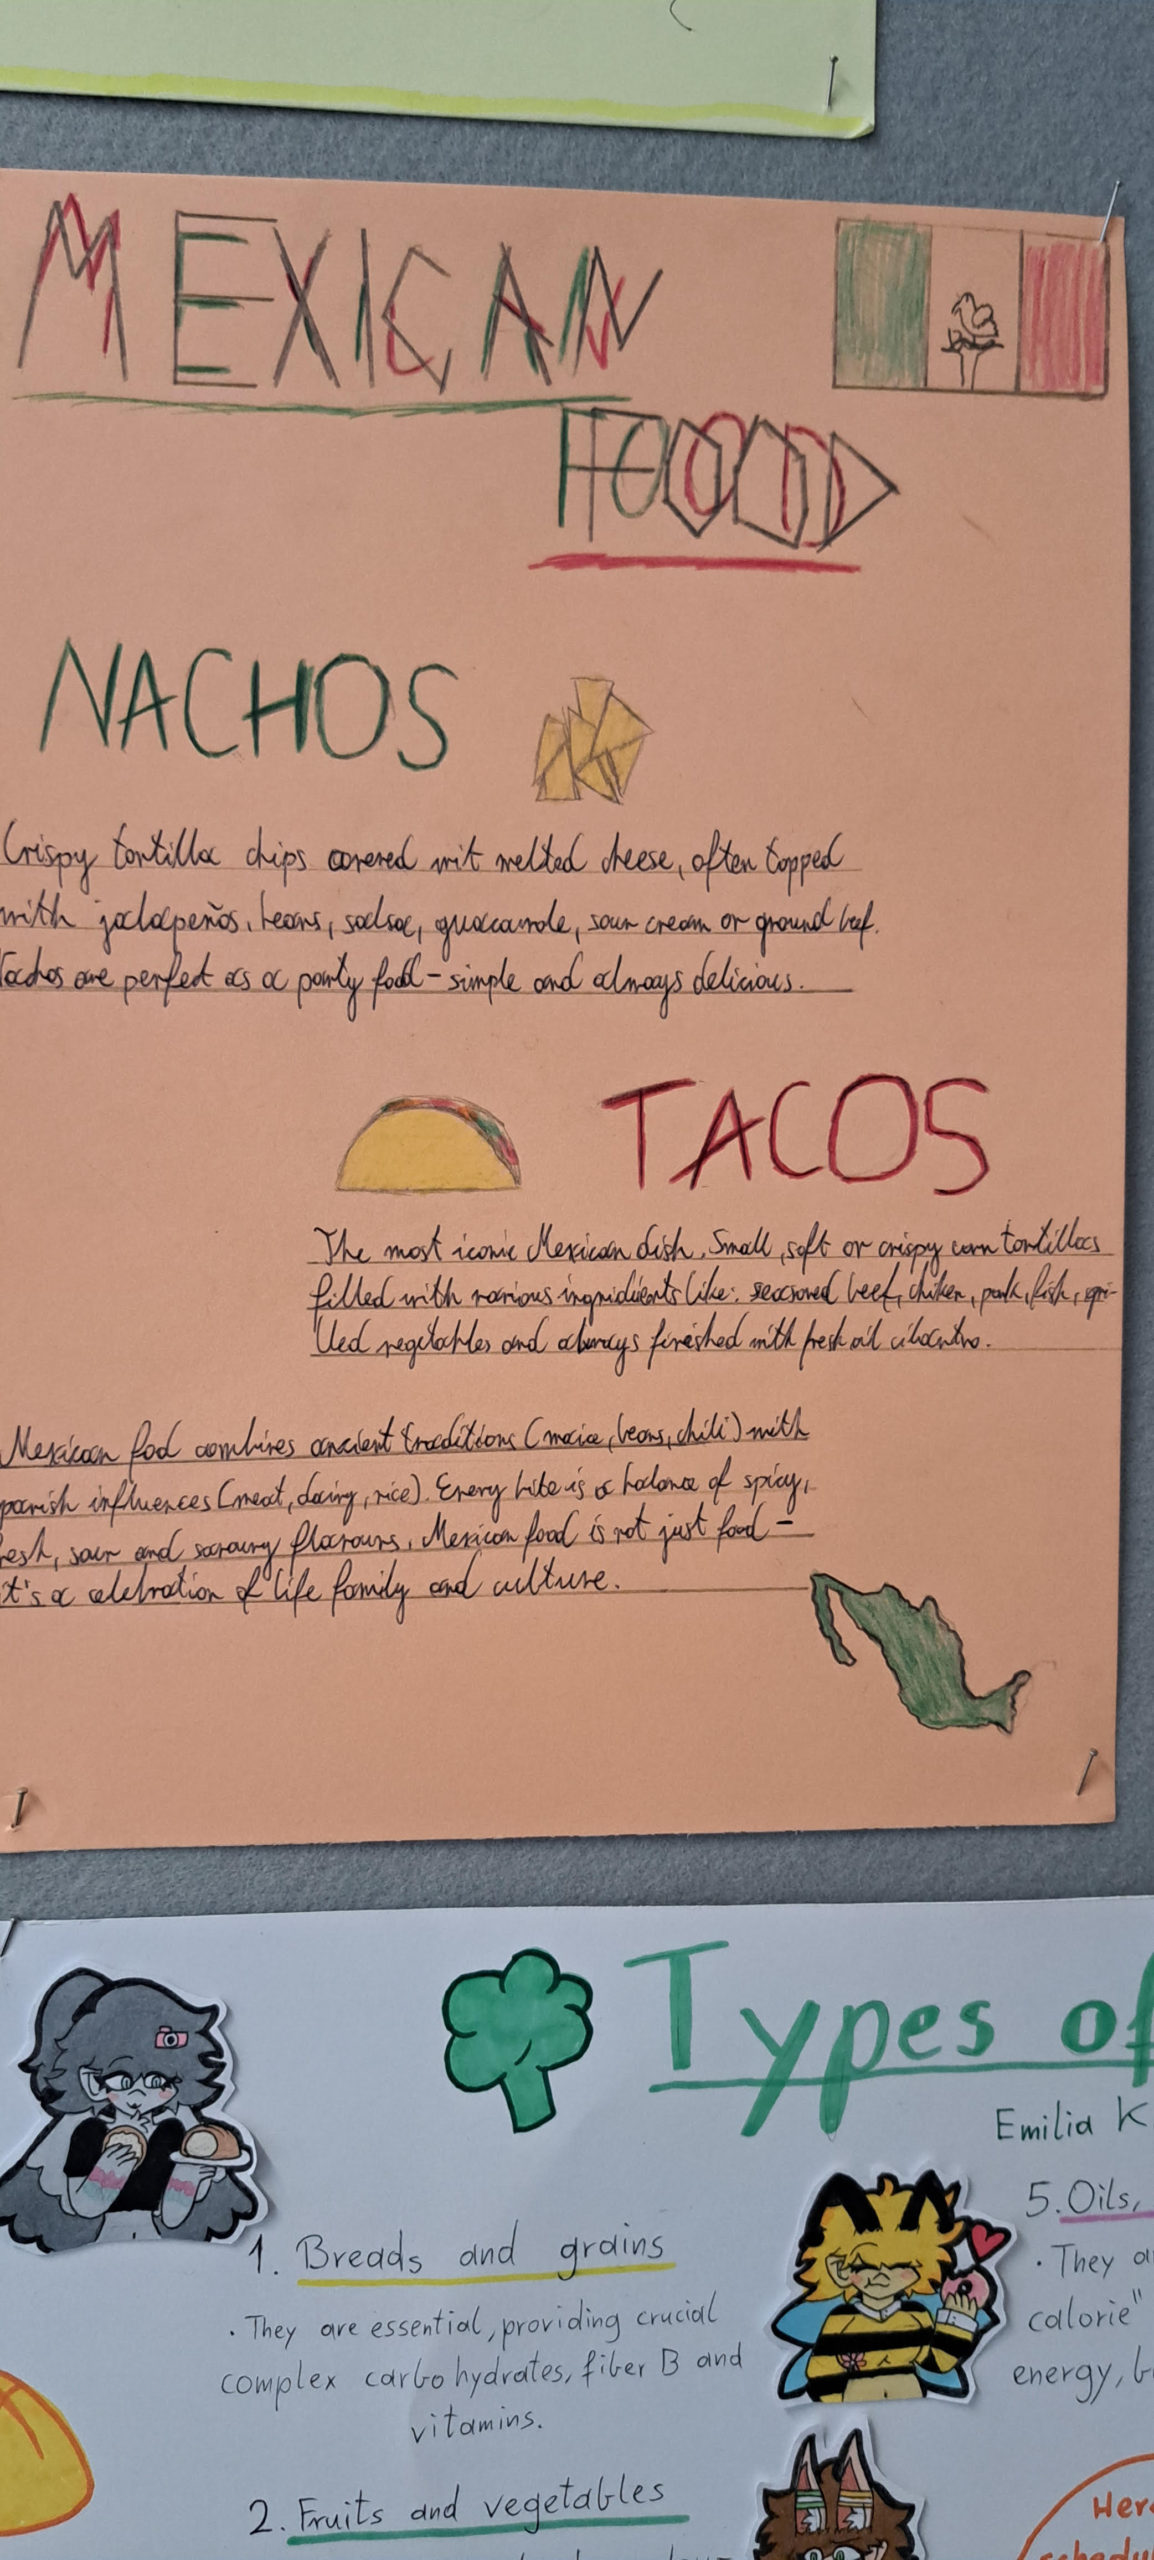 MEXICAN
FOOD
NACHOS
Crispy tortilla chips covered wit melted cheese, often topped
with jalapeños, beans, salsa, guacamole, sour cream or ground beef.
are perfect as a party food - simple and always delicious.
TACOS
The most iconic Mexican dish. Small, soft or crispy corn tortillas
filled with various ingridients like: seasoned beef, chiken, pork, fish, gri-
lled vegetables and always finished with fresh cilantro.
Mexican food combines ancient traditions (maize, beans, chili) with
panish influences (meat, dairy, rice). Every bite is a balance of spicy,
resh, sour and savoury flavours. Mexican food is not just food -
it's a celebration of life family and culture.
Types of
Emilia K
1. Breads and grains
· They are essential, providing crucial
complex carbohydrates, fiber B and
vitamins.
2. Fruits and vegetables
5. Oils,
· They a
calorie"
energy, b
Her
schedu